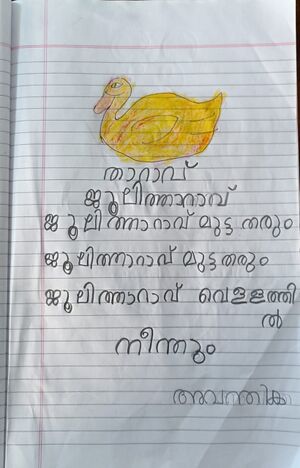 താറാവ്
ജൂലിത്താറാവ്
ജൂലിത്താറാവ് മുട്ട തരും
ജൂലിത്താറാവ് മുട്ട തരും
ജൂലിത്താറാവ് വെള്ളത്തി
ൽ
നീന്തും
അവന്തിക